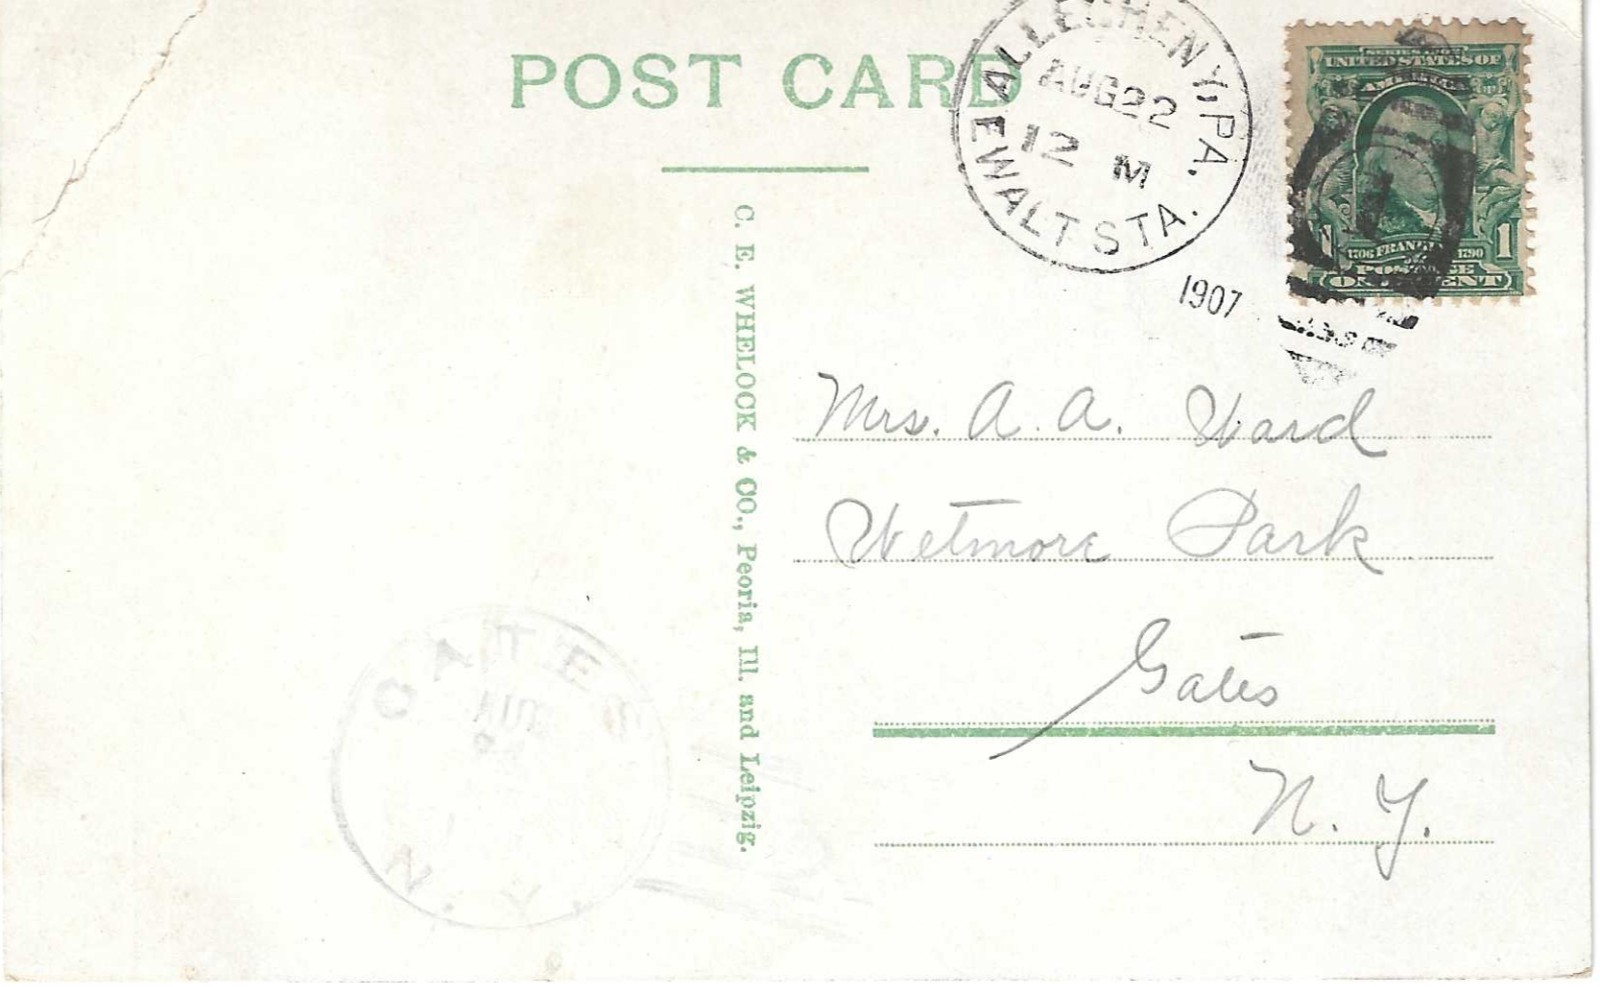 POST CARD
ALLEGHENY, PA.
AUG 22
12 M
EWALT STA.
1907
SERIES OF 1902
UNITED STATES OF
AMERICA
1 1
1706 FRANKLIN 1790
POSTAGE
ONE CENT
C. E. WHELOCK & CO., Peoria, Ill. and Leipzig.
Mrs. A. A. Ward
Wetmore Park
Gates
N. Y.
GATES
AUG
N. Y.